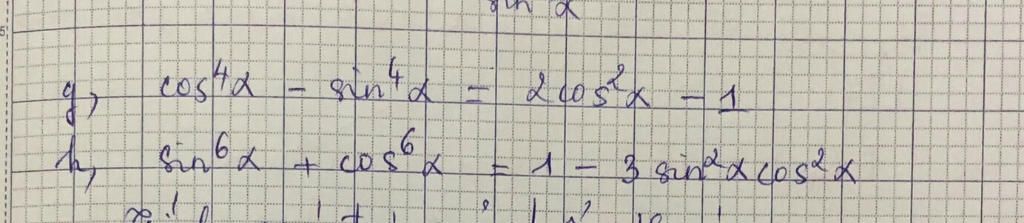 sin α
g, cos⁴α - sin⁴α = 2cos²α - 1
h, sin⁶α + cos⁶α = 1 - 3 sin²α cos²α